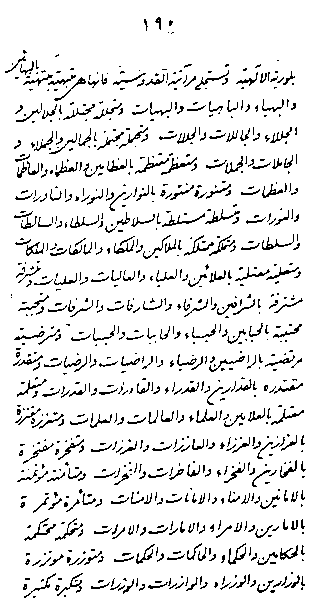 ١٩٠
بلورية الالهية وتستملي مرآتية القدوسية كانها هي متبهية مبتهية بالبهائين
والبهياء والباهيات والبهيات ومتجلة مجتللة بالجلالين و
الجللاء والجاللات والجللات ومتجملة مجتملة بالجمالين والجملاء و
الجاملات والجملات ومتعظمة معتظمة بالعظامين والعظماء والعاظمات
والعظمات ومتنورة منتورة بالنوارين والنوراء والناورات
والنورات ومتسلطة مستلطة بالسلاطين والسلطاء والسالطات
والسلطات ومتملكة ممتلكة بالملاكين والملكاء والمالكات والملكات
ومتعلية معتلية بالعلائين والعلياء والعاليات والعليات ومتشرقة
مشترقة بالشراقين والشرقاء والشارقات والشرقات ومتحببة
محتببة بالحبابين والحبباء والحاببات والحببات ومترضية
مرتضية بالراضيين والرضياء والراضيات والرضيات ومتقدرة
مقتدره بالقدارين والقدراء والقادرات والقدرات ومتعلمة
معتلمة بالعلامين والعلماء والعالمات والعلمات ومتعززة معتززة
بالعزازين والعززاء والعاززات والعززات ومتفخرة مفتخرة
بالفخارين والفخراء والفاخرات والفخرات ومتأمنة مؤتمنة
بالامانين والامناء والامانات والامنات ومتأمرة مؤتمرة
بالامارين والامراء والامارات والامرات ومتحكمة محتكمة
بالحكامين والحكماء والحاكمات والحكمات ومتوزرة موتزرة
بالوزارين والوزراء والوازرات والوزرات ومتكبرة مكتبرة